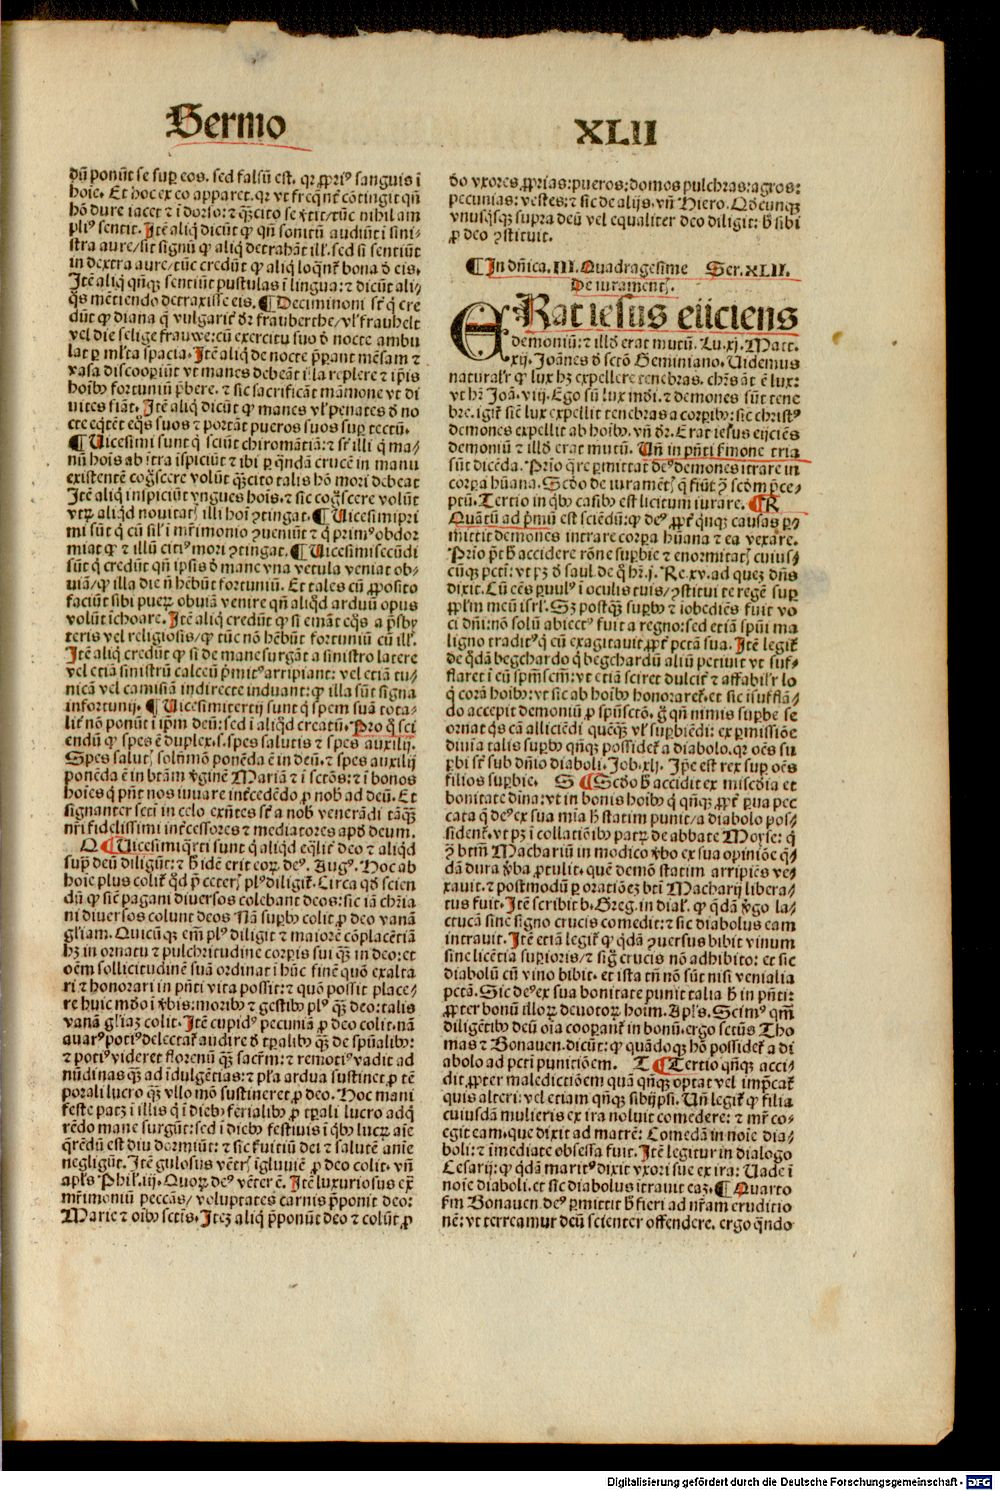 Sermo
XLII
dū ponūt se suꝑ eos. sed falsū est. qꝛ ꝓpriꝰ sanguis ī
hoīe. Et hoc ex eo apparet. qꝛ vt freqn̄t̄ cōtingit qn̄
hō dure iacet ⁊ ī dorso: ⁊ qꝫcito se v̄tit/tūc nihil am
pliꝰ sentit. Itē aliq̄ dicūt ꝙ qn̄ sonitū audiūt ī sini⸗
stra aure/sit signū ꝙ aliq̄ detrahāt illꝭ. sed si sentiūt
in dextra aure/tūc credūt ꝙ aliq̄ loqn̄t bona d̄ eis.
Itē aliq̄ qn̄qꝫ sentiūt pustulas ī lingua: ⁊ dicūt ali⸗
qs mētiendo detraxisse eis. ¶ Deciminoni st̄ q̄ cre
dūt ꝙ diana q̄ vulgarit̄ dr̄ frauberthe/vl̓ frauhelt
vel die selige frauwe: cū exercitu suo d̄ nocte ambu
lat ꝑ ml̓ta spacia. Itē aliq̄ de nocte p̄parant mēsam ⁊
vasa discoopiūt vt manes debeāt illa replere ⁊ ip̄is
hoībꝰ fortuniū p̄bere. ⁊ sic sacrificāt māmone vt di
uites fiāt. Itē aliq̄ dicūt ꝙ manes vl̓ penates d̄ no
cte eq̄tēt eq̄s suos ⁊ portāt pueros suos suꝑ tectū.
¶ Uicesimi sunt q̄ sciūt chiromātiā: ⁊ st̄ illi q̄ ma⸗
nū hoīs ab ītra īspiciūt ⁊ ibi ꝑ qn̄dā crucē in manu
existentē cog̓scere volūt qꝫcito talis hō mori debeat
Itē aliq̄ inspiciūt vngues hoīs. ⁊ sic cog̓scere volūt
vtꝝ aliqd̄ nouitatꝭ illi hoī ꝯtingat. ¶ Uicesimipri
mi sūt q̄ cū sil̓ ī mr̄imonio ꝯueniūt ⁊ q̄ primꝰ obdor
miat ꝙ ⁊ illū citiꝰ mori ꝯtingat. ¶ Uicesimisecūdi
sūt q̄ credūt qn̄ ipsis d̄ mane vna vetula veniat ob⸗
uiā/ꝙ illa die nō hēbūt fortuniū. Et tales cū ꝓposito
faciūt sibi pueꝝ obuiā venire qn̄ aliqd̄ arduū opus
volūt īchoare. Itē aliq̄ credūt ꝙ si emāt eq̄s a p̄sby
teris vel religiosis/ꝙ tūc nō hēbūt fortuniū cū illꝭ.
Itē aliq̄ credūt ꝙ si de mane surgāt a sinistro latere
vel etiā sinistrū calceū p̄mitꝰ arripiant: vel etiā tu⸗
nicā vel camisiā indirecte induant: ꝙ illa sūt signa
infortunij. ¶ Uicesimitertij sunt q̄ spem suā tota⸗
lit̄ nō ponūt ī ip̄m deū: sed ī aliqd̄ creatū. Pro q̄ sci
endū ꝙ spes ē duplex. s. spes salutis ⁊ spes auxilij.
Spes salutꝭ solūmō ponēda ē in deū. ⁊ spes auxilij
ponēda ē in brām v̓ginē Mariā ⁊ ī sctōs: ⁊ ī bonos
hoīes q̄ pn̄t nos iuuare int̄cedēdo ꝓ nobꝭ ad deū. Et
signanter sctī in celo exn̄tes st̄ a nobꝭ venerādi tāqꝫ
nr̄i fidelissimi int̄cessores ⁊ mediatores apd̄ deum.
Q ¶ Uicesimiq̄rti sunt q̄ aliqd̄ eq̄lit̄ deo ⁊ aliqd̄
suꝑ deū diligūt: ⁊ h̓ idē erit eoꝝ deꝰ. Augꝰ. Hoc ab
hoīe plus colit̄ qd̄ p̄ ceterꝭ plꝰ diligit̄. Circa qd̄ scien
dū ꝙ sic̄ pagani diuersos colebant deos: sic iā chr̄ia
ni diuersos colunt deos Nā suꝑbꝰ colit ꝓ deo vanā
gl̓iam. Quicūqꝫ em̄ plꝰ diligit ⁊ maiorē cōplacētiā
hꝫ in ornatu ⁊ pulchritudine corꝑis sui qꝫ in deo: et
oēm sollicitudinē suā ordinat ī hūc finē quō exalta
ri ⁊ honorari in pn̄ti vita possit: ⁊ quō possit place⸗
re huic mūdo ī v̓bis: moribꝰ ⁊ gestibꝰ plꝰ qꝫ deo: talis
vanā gl̓iaꝫ colit. Itē cupidꝰ pecuniā ꝓ deo colit. nā
auarꝰ potiꝰ delectat̄ audire d̄ tꝑalibꝰ qꝫ de spūalibꝰ:
⁊ potiꝰ videret florenū qꝫ sacr̄m: ⁊ remotiꝰ vadit ad
nūdinas qꝫ ad īdulgētias: ⁊ pl̓a ardua sustinet ꝓ tē
porali lucro qꝫ vllo mō sustineret ꝓ deo. Hoc mani
feste patꝫ ī illis q̄ ī diebꝰ ferialibꝰ ꝓ tꝑali lucro adq̄
rēdo mane surgūt: sed ī diebꝰ festiuis ī qbꝰ lucꝝ aīe
q̄rēdū est diu dormiūt: ⁊ sic s̓uitiū dei ⁊ salutē anīe
negligūt. Itē gulosus vētrꝭ īgluuiē ꝓ deo colit. vn̄
apl̓s Phil̓. iij. Quoꝝ deꝰ vēter ē. Itē luxuriosus ext̄
mr̄imoniū peccās/ voluptates carnis p̄ponit deo:
Marie ⁊ oībꝰ sctīs. Iteꝫ aliq̄ p̄ponūt deo ⁊ colūt ꝓ
do vxores ꝓprias: pueros: domos pulchras: agros:
pecunias: vestes: ⁊ sic de alijs. vn̄ Hiero. Qd̄cunqꝫ
vnusqsqꝫ supra deū vel equaliter deo diligit: h̓ sibi
ꝓ deo ꝯstituit.
¶ In dn̄ica. III. Quadragesime Ser. XLII.
De iuramentꝭ.
ERat iesus eijciens
demoniū: ⁊ illd̄ erat mutū. Lu. xj. Matt.
xij. Joānes d̄ sctō Geminiano. Uidemus
naturalr̓ ꝙ lux hꝫ expellere tenebras. chr̄s āt ē lux:
vt hr̄ Joā. viij. Ego sū lux mūdi. ⁊ demones sūt tene
bre. igit̄ sic̄ lux expellit tenebras a corꝑibꝰ: sic christꝰ
demones expellit ab hoībꝰ. vn̄ dr̄. Erat iesus eijciēs
demoniū ⁊ illd̄ erat mutū. Un̄ in pn̄ti s̓mone tria
sūt dicēda. Prīo q̄re ꝑmittat deꝰ demones ītrare in
corꝑa hūana. Scd̄o de iuramētꝭ q̄ fiūt ꝯ scd̄m p̄ce⸗
ptū. Tertio in qbꝰ casibꝰ est licitum iurare. ¶ R
Quātū ad p̄mū est sciēdū: ꝙ deꝰ ꝓpt̄ qn̄qꝫ causas ꝑ⸗
mittit demōes intrare corꝑa hūana ⁊ ea vexare.
Prīo pōt h̓ accidere rōne suꝑbie ⁊ enormitatꝭ cuius⸗
cūqꝫ pctī: vt pꝫ d̄ saul. de q̄ hr̄. j. Re. xv. ad quez dn̄s
dixit. Cū eēs ꝑuulꝰ ī oculis tuis/ ꝯstitui te regē suꝑ
ppl̓m meū isrl̓. Sꝫ postqꝫ suꝑbꝰ ⁊ iobediēs fuit vo
ci dn̄i: nō solū abiectꝰ fuit a regno: sed etiā spūi ma
ligno traditꝰ q̄ cū exagitauit ꝓpt̄ pctā sua. Itē legit̄
de qd̄ā begehardo q̄ begehardū aliū petiuit vt suf⸗
flaret ī eū spm̄scm̄: vt etiā sciret dulcit̄ ⁊ affabilr̓ lo
q̄ corā hoībꝰ: vt sic ab hoībꝰ honoraret̄. et sic īsufflā⸗
do accepit demoniū ꝓ spūsctō. g̓ qn̄ nimis suꝑbe se
ornat qs cā alliciēdi quēqꝫ vl̓ suꝑbiēdi: ex ꝑmissiōe
diuīa talis suꝑbꝰ qn̄qꝫ possidet̄ a diabolo. qꝛ oēs su
ꝑbi st̄ sub dn̄io diaboli. Job. xlj. Ip̄e est rex suꝑ oēs
filios suꝑbie. S ¶ Scd̄o h̓ accidit ex misc̄dia et
bonitate diīna: vt in bonis hoībꝰ q̄ qn̄qꝫ ꝓpt̄ ꝑua pec
cata q̄ deꝰ ex sua mīa h̓ statim punit/a diabolo pos⸗
sident̄. vt pꝫ ī collatiēibꝰ patꝝ de abbate Moyse: q̄
ꝯ btm̄ Machariū in modico v̓bo ex sua opiniōe q̄⸗
dā dura v̓ba ꝓtulit. quē demō statim arripiēs ve⸗
xauit. ⁊ postmodū ꝑ oratiōeꝫ btī Macharij libera⸗
tus fuit. Itē scribit b. Greg. in dial̓. ꝙ qd̄ā v̓go la⸗
ctucā sine signo crucis comedit: ⁊ sic diabolus eam
intrauit. Itē etiā legit̄ ꝙ qd̄ā ꝯuersus bibit vinum
sine licētia suꝑioris/⁊ sig̓ crucis nō adhibito: et sic
diabolū cū vino bibit. et ista tn̄ nō sūt nisi venialia
pctā. Sic deꝰ ex sua bonitate punit talia h̓ in pn̄ti:
ꝓpter bonū illoꝝ deuotoꝝ hoīm. Apl̓s. Scimꝰ qm̄
diligētibꝰ deū oīa cooꝑant̄ in bonū. ergo sctūs Tho
mas ⁊ Bonauen. dicūt: ꝙ quādoqꝫ hō possidet̄ a di
abolo ad pctī punitiōem. T ¶ Tertio qn̄qꝫ acci⸗
dit ꝓpter maledictiōem quā qn̄qꝫ optat vel imp̄cat̄
quis alteri: vel etiam qn̄qꝫ sibijpsi. Un̄ legit̄ ꝙ filia
cuiusdā mulieris ex ira noluit comedere: ⁊ mr̄ co⸗
egit eam. que dixit ad matrē: Comedā in noīe dia⸗
boli: ⁊ īmediate obsessa fuit. Itē legitur in dialogo
Cesarij: ꝙ qd̄ā maritꝰ dixit vxori sue ex ira: Uade ī
noīe diaboli. et sic diabolus ītrauit eaꝫ. ¶ Quarto
s̓m Bonauen. deꝰ ꝑmittit h̓ fieri ad nr̄am eruditio
nē: vt terreamur deū scienter offendere. ergo qn̄do
Digitalisierung gefördert durch die Deutsche Forschungsgemeinschaft - DFG